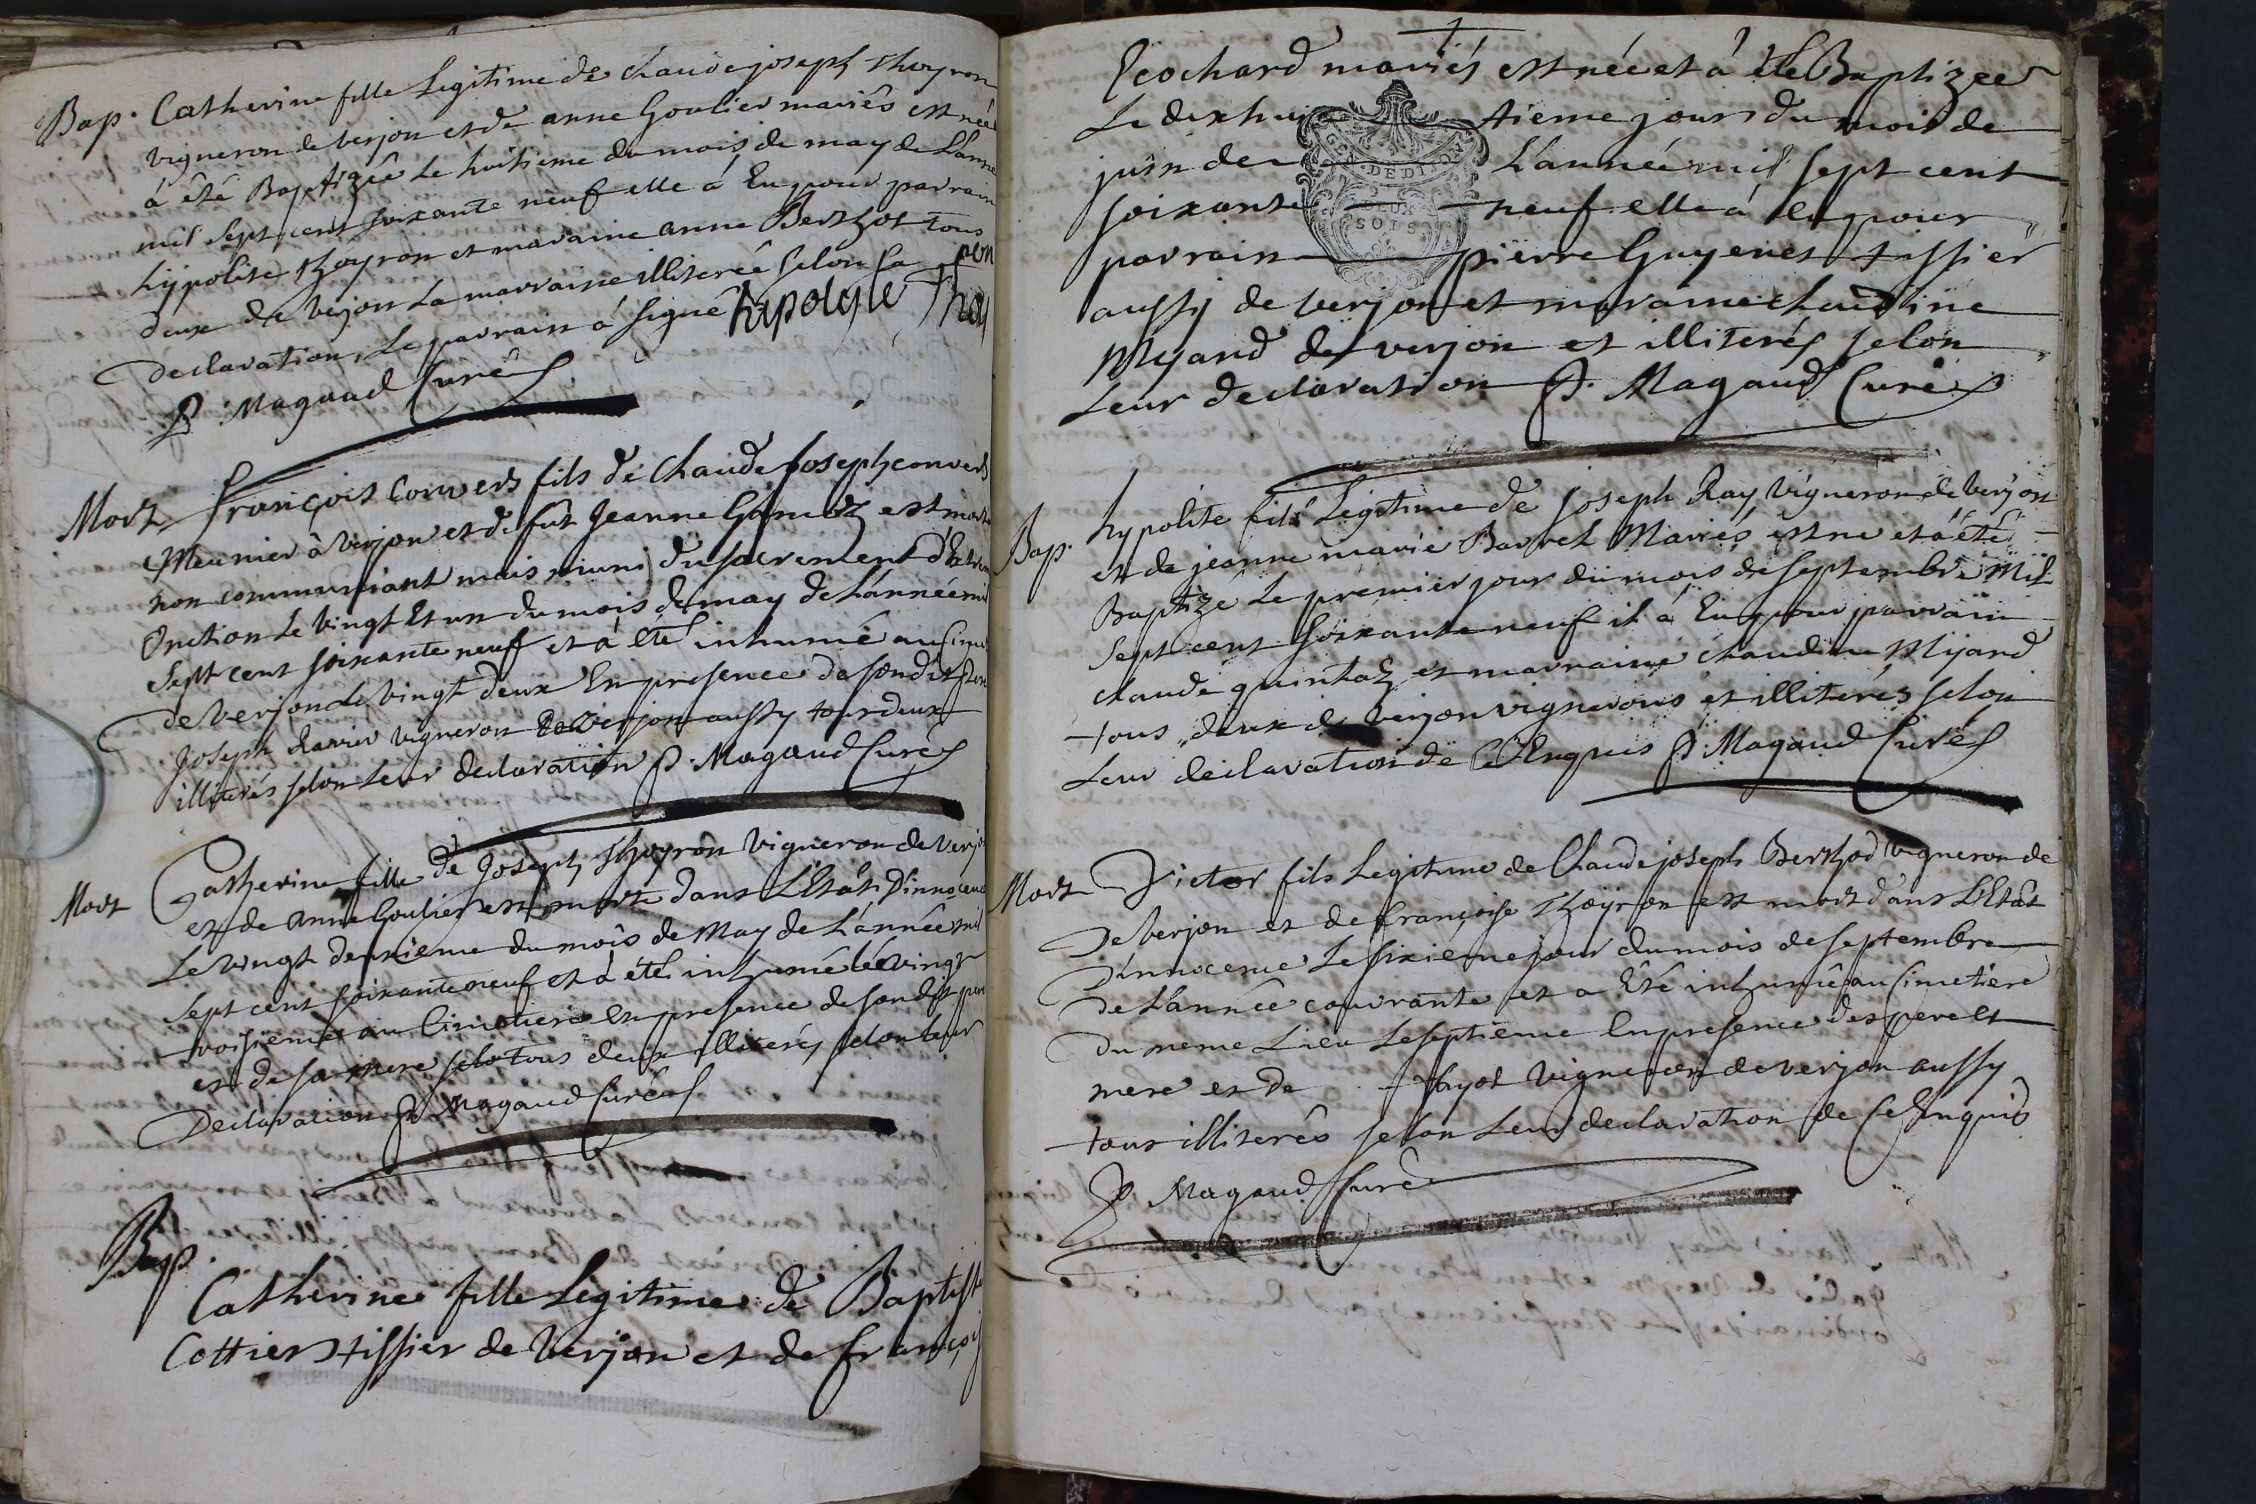 Bap. Catherine fille Legitime de Claude joseph Thoyron
vigneron de verjon et de anne Goulier mariés est née
á été Baptizée le huitieme du mois de may de L'anne
mil sept cent soixante neuf elle á Eu pour parrain
hypolite Thoyron et maraine anne Berthot tous
deux de verjon La marraine illiterée selon sa
Declaration, Le parrain á signé hipolyte Thoy
ron
P. Magaud Curé
Mort françois Convers fils de Claude Joseph convers
Meunier à verjon et de fût Jeanne est mort
non communiant mais muni du sacrement d'Extreme
Onction le vingt et un du mois de may de L'année mil
Sept cent soixante neuf et á été inhumé au Cime
de verjon le vingt deux En presence de son dit pere
Joseph Ravier vigneron de verjon aussy tous deux
illiterés selon leur declaration P. Magaud Curé
Mort Catherine fille de Joseph Thoyron vigneron de verjo
et de anne Goulier est morte dans L'Etat D'innocence
Le vingt deuxieme du mois de May de L'année mil
Sept cent soixante neuf et á été inhumée le vingt
troisieme au Cimetiere En presence de son dit pere
et de sa mere tous deux illiterés selon leur
Declaration P. Magaud Curé
Bap.
Catherine fille Legitime de Baptiste
Cottier tissier de Verjon et de françois
Ecochard mariés est née et á été Baptizée
Le dix hui tieme jour du mois de
juin de L'année mil sept cent
soixante neuf elle á eu pour
parrain pierre Guyenet tissier
aussy de verjon et maraine Claudine
Myard de verjon et illiterés selon
Leur declaration P. Magaud Curé
GEN. DEDIJON
DEUX
SOLS
Bap. hypolite fils Legitime de joseph Ray vigneron de verjon
et de jeanne marie Barret Mariés est né et á été
Baptizé Le premier jour du mois de septembre Mil
Sept cent soixante neuf il á Eu pour parrain
claude quintaz et marraine claudine Myard
tous deux de verjon vignerons et illiterés selon
Leur declaration de ce Enquis P. Magaud Curé
Mort Victor fils Legitime de Claude joseph Berthod vigneron de
De verjon et de françoise Thoyron est mort dans L'Etat
D'innocence Le sixieme jour du mois de septembre
De L'année courrante et a Eté inhumé au Cimetiere
Du meme Lieu Le septieme En presence des pere et
mere et de thyot vigneron de verjon aussy
tous illiterés selon Leur declaration de ce Enquis
P. Magaud Curé